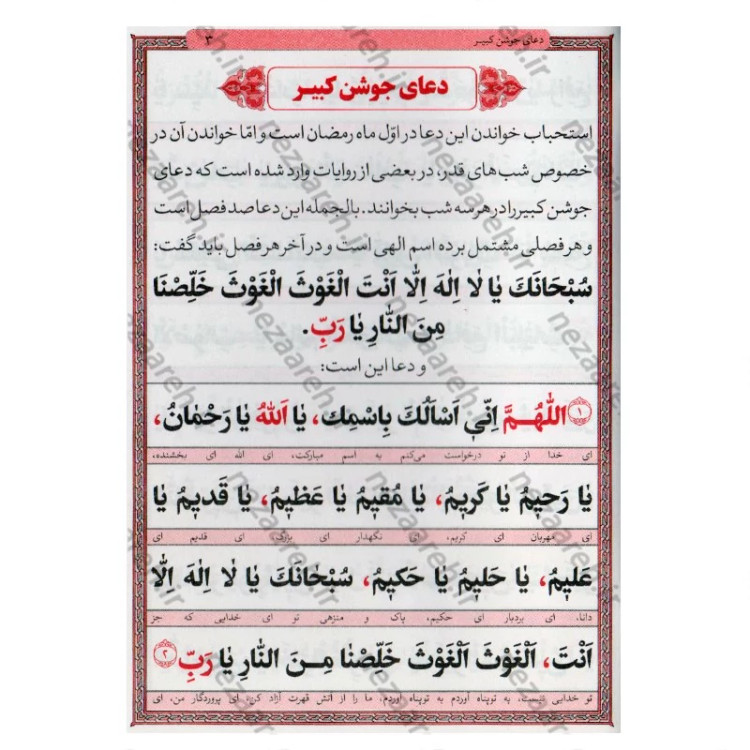 دعای جوشن کبیـر ۳
دعای جوشن کبیـر
استحباب خواندن این دعا در اوّل ماه رمضان است و امّا خواندن آن در
خصوص شب های قدر، در بعضی از روایات وارد شده است که دعای
جوشن کبیر را در هر سه شب بخوانند. بالجمله این دعا صد فصل است
و هر فصلی مشتمل بر ده اسم الهی است و در آخر هر فصل باید گفت:
سُبْحَانَكَ یٰا لٰا اِلٰهَ اِلّٰا اَنْتَ الْغَوْثَ الْغَوْثَ خَلِّصْنٰا
مِنَ النّٰارِ یٰا رَبِّ.
و دعا این است:
۱ اَللّٰهُـمَّ اِنّي اَسْاَلُكَ بِاسْمِكَ، یٰا اَللهُ یٰا رَحْمٰنُ،
ای خدا از تو درخواست می‌کنم به اسم مبارکت، ای الله ای بخشنده،
یٰا رَحیمُ یٰا کَریمُ، یٰا مُقیمُ یٰا عَظیمُ، یٰا قَدیمُ یٰا
ای مهربان ای کریم، ای نگهدار ای بزرگ، ای قدیم ای
عَلیمُ، یٰا حَلیمُ یٰا حَکیمُ، سُبْحٰانَكَ یٰا لٰا اِلٰهَ اِلّٰا
دانا، ای بردبار ای حکیم، پاک و منزهی تو ای خدایی که جز
اَنْتَ، اَلْغَوْثَ اَلْغَوْثَ خَلِّصْنٰا مِـنَ النّٰارِ یٰا رَبِّ ۲
تو خدایی نیست، به تو پناه آوردم به تو پناه آوردم، ما را از آتش قهرت آزاد کن، ای پروردگار من، ای
nezaareh.ir